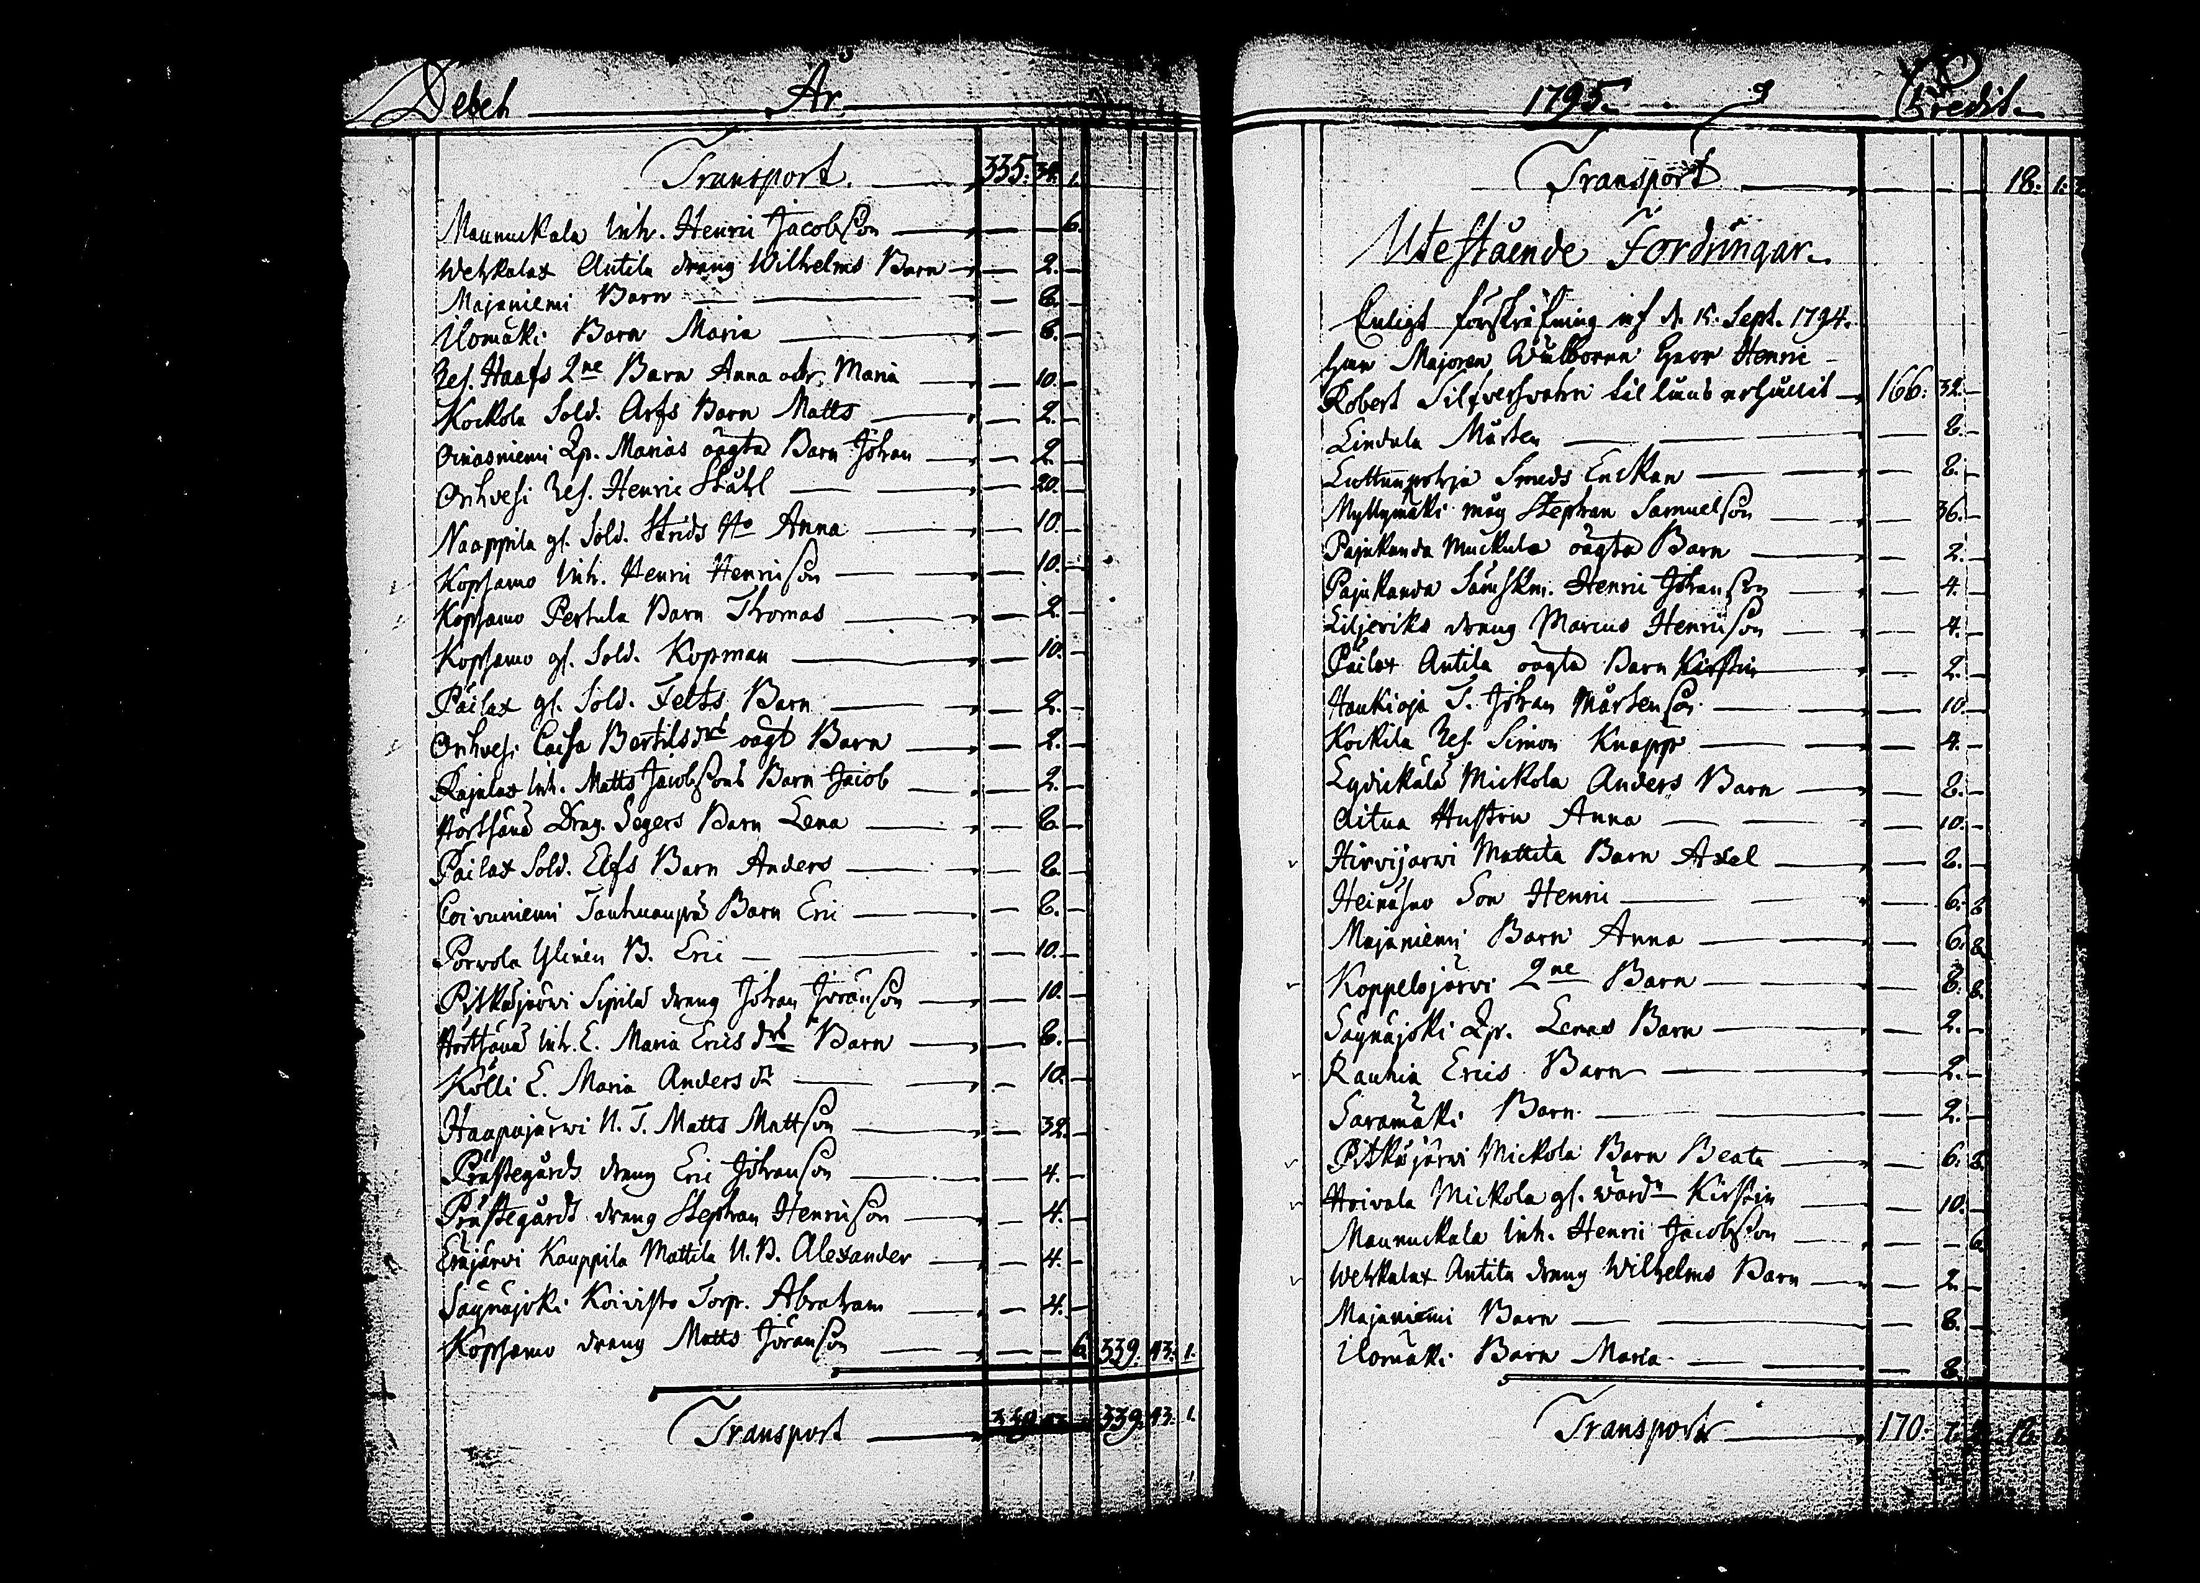 Debet År
Transport. 335. 34. 1.
Maunuckala Inh. Henric Jacobsson — — 6.
Wehkalax Antila dräng Wilhelms Barn — 2. —
Majaniemi Barn — 8. —
Ylomäki Barn Maria — 6. —
Res. Haafs 2ne Barn Anna och Maria — 10. —
Kockola Sold. Arfs Barn Matts — 2. —
Oinasniemi Qp. Marias oägta Barn Johan — 2. —
Orihvesi Res. Henric Ståhl — 20. —
Naappila gl. Sold. Strids Ho Anna — 10. —
Kopsamo Inh. Henric Henricsson — 10. —
Kopsamo Pertula Barn Thomas — 2. —
Kopsamo gl. Sold. Kopman — 10. —
Päilax gl. Sold. Felts Barn — 2. —
Orihvesi Caisa Bertilsdr oägt Barn — 2. —
Rajalax Inh. Matts Jacobssons Barn Jacob — 2. —
Hörtsänä Drag. Segers Barn Lena — 8. —
Päilax Sold. Elfs Barn Anders — 8. —
Coivuniemi Barn Eric — 8. —
Porvola Ylinen B. Eric — 10. —
Pitkäjärvi Sipilä dräng Johan Jöransson — 10. —
Hörtsänä Inh. E. Maria Ericsdrs Barn — 8. —
Kölli E. Maria Andersdr — 10. —
Haapajärwi N. T. Matts Mattsson — 32. —
Prästegårds dräng Eric Johansson — 4. —
Prästegårds dräng Stephan Henricsson — 4. —
Eräjärvi Kauppila Mattila N. B. Alexander — 4. —
Säynäjoki Koivisto Torp. Abraham — 4. —
Kopsamo dräng Matts Jöransson — — 6. 339. 43. 1.
Transport 339. 43. 1.
1795. 9 Credit
Transport — — 18. 1.
Utestående Fordringar.
Enligt förskrifning af d. 15. Sept. 1794.
Herr Majoren Wälborne Herr Henric
Robert Silfversvahn til låns erhållit 166. 32. —
Lindala Mårten — 8. —
Luttunpohja Smeds Enckan — 8. —
Myllymäki måg Stephan Samuelsson — 36. —
Pajukanda Muckula oägta Barn — 2. —
Pajukanda Sämskm. Henric Johansson — 4. —
Liljeriks dräng Marcus Henricsson — 4. —
Päilax Antila oägta Barn Kirstin — 2. —
Haukioja T. Johan Mårtensson — 10. —
Kockila Res. Simon Knapp — 4. —
Lydickälä Mickola Anders Barn — 8. —
Aitua Hustru Anna — 10. —
Hirvijärwi Mattila Barn Axel — 8. —
Heinäsuo Son Henric — 6. 8.
Majaniemi Barn Anna — 6. 8.
Koppelojärvi 2ne Barn — 8. 8.
Säynäjoki Qp. Lenas Barn — 2. —
Rauhia Erics Barn — 2. —
Saramäki Barn — 2. —
Pitkäjärvi Mickola Barn Beata — 6. 8.
Hoivala Mickola gl. värdn Kirstin — 10. —
Maunuckala Inh. Henric Jacobsson — — 6.
Wehkalax Antila dräng Wilhelms Barn — 2. —
Majaniemi Barn — 8. —
Ylomäki Barn Maria — 8. —
Transport 170. 7. 18. 1.